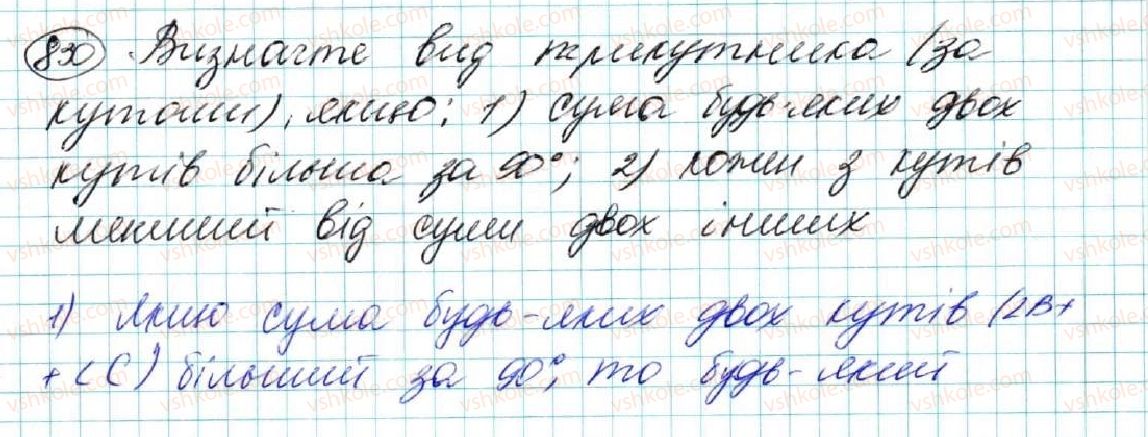 830 Визначте вид трикутника (за
кутами), якщо: 1) сума будь-яких двох
кутів більша за 90°; 2) кожен з кутів
менший від суми двох інших
1) Якщо сума будь-яких двох кутів (∠B+
+∠C) більший за 90°, то будь-який